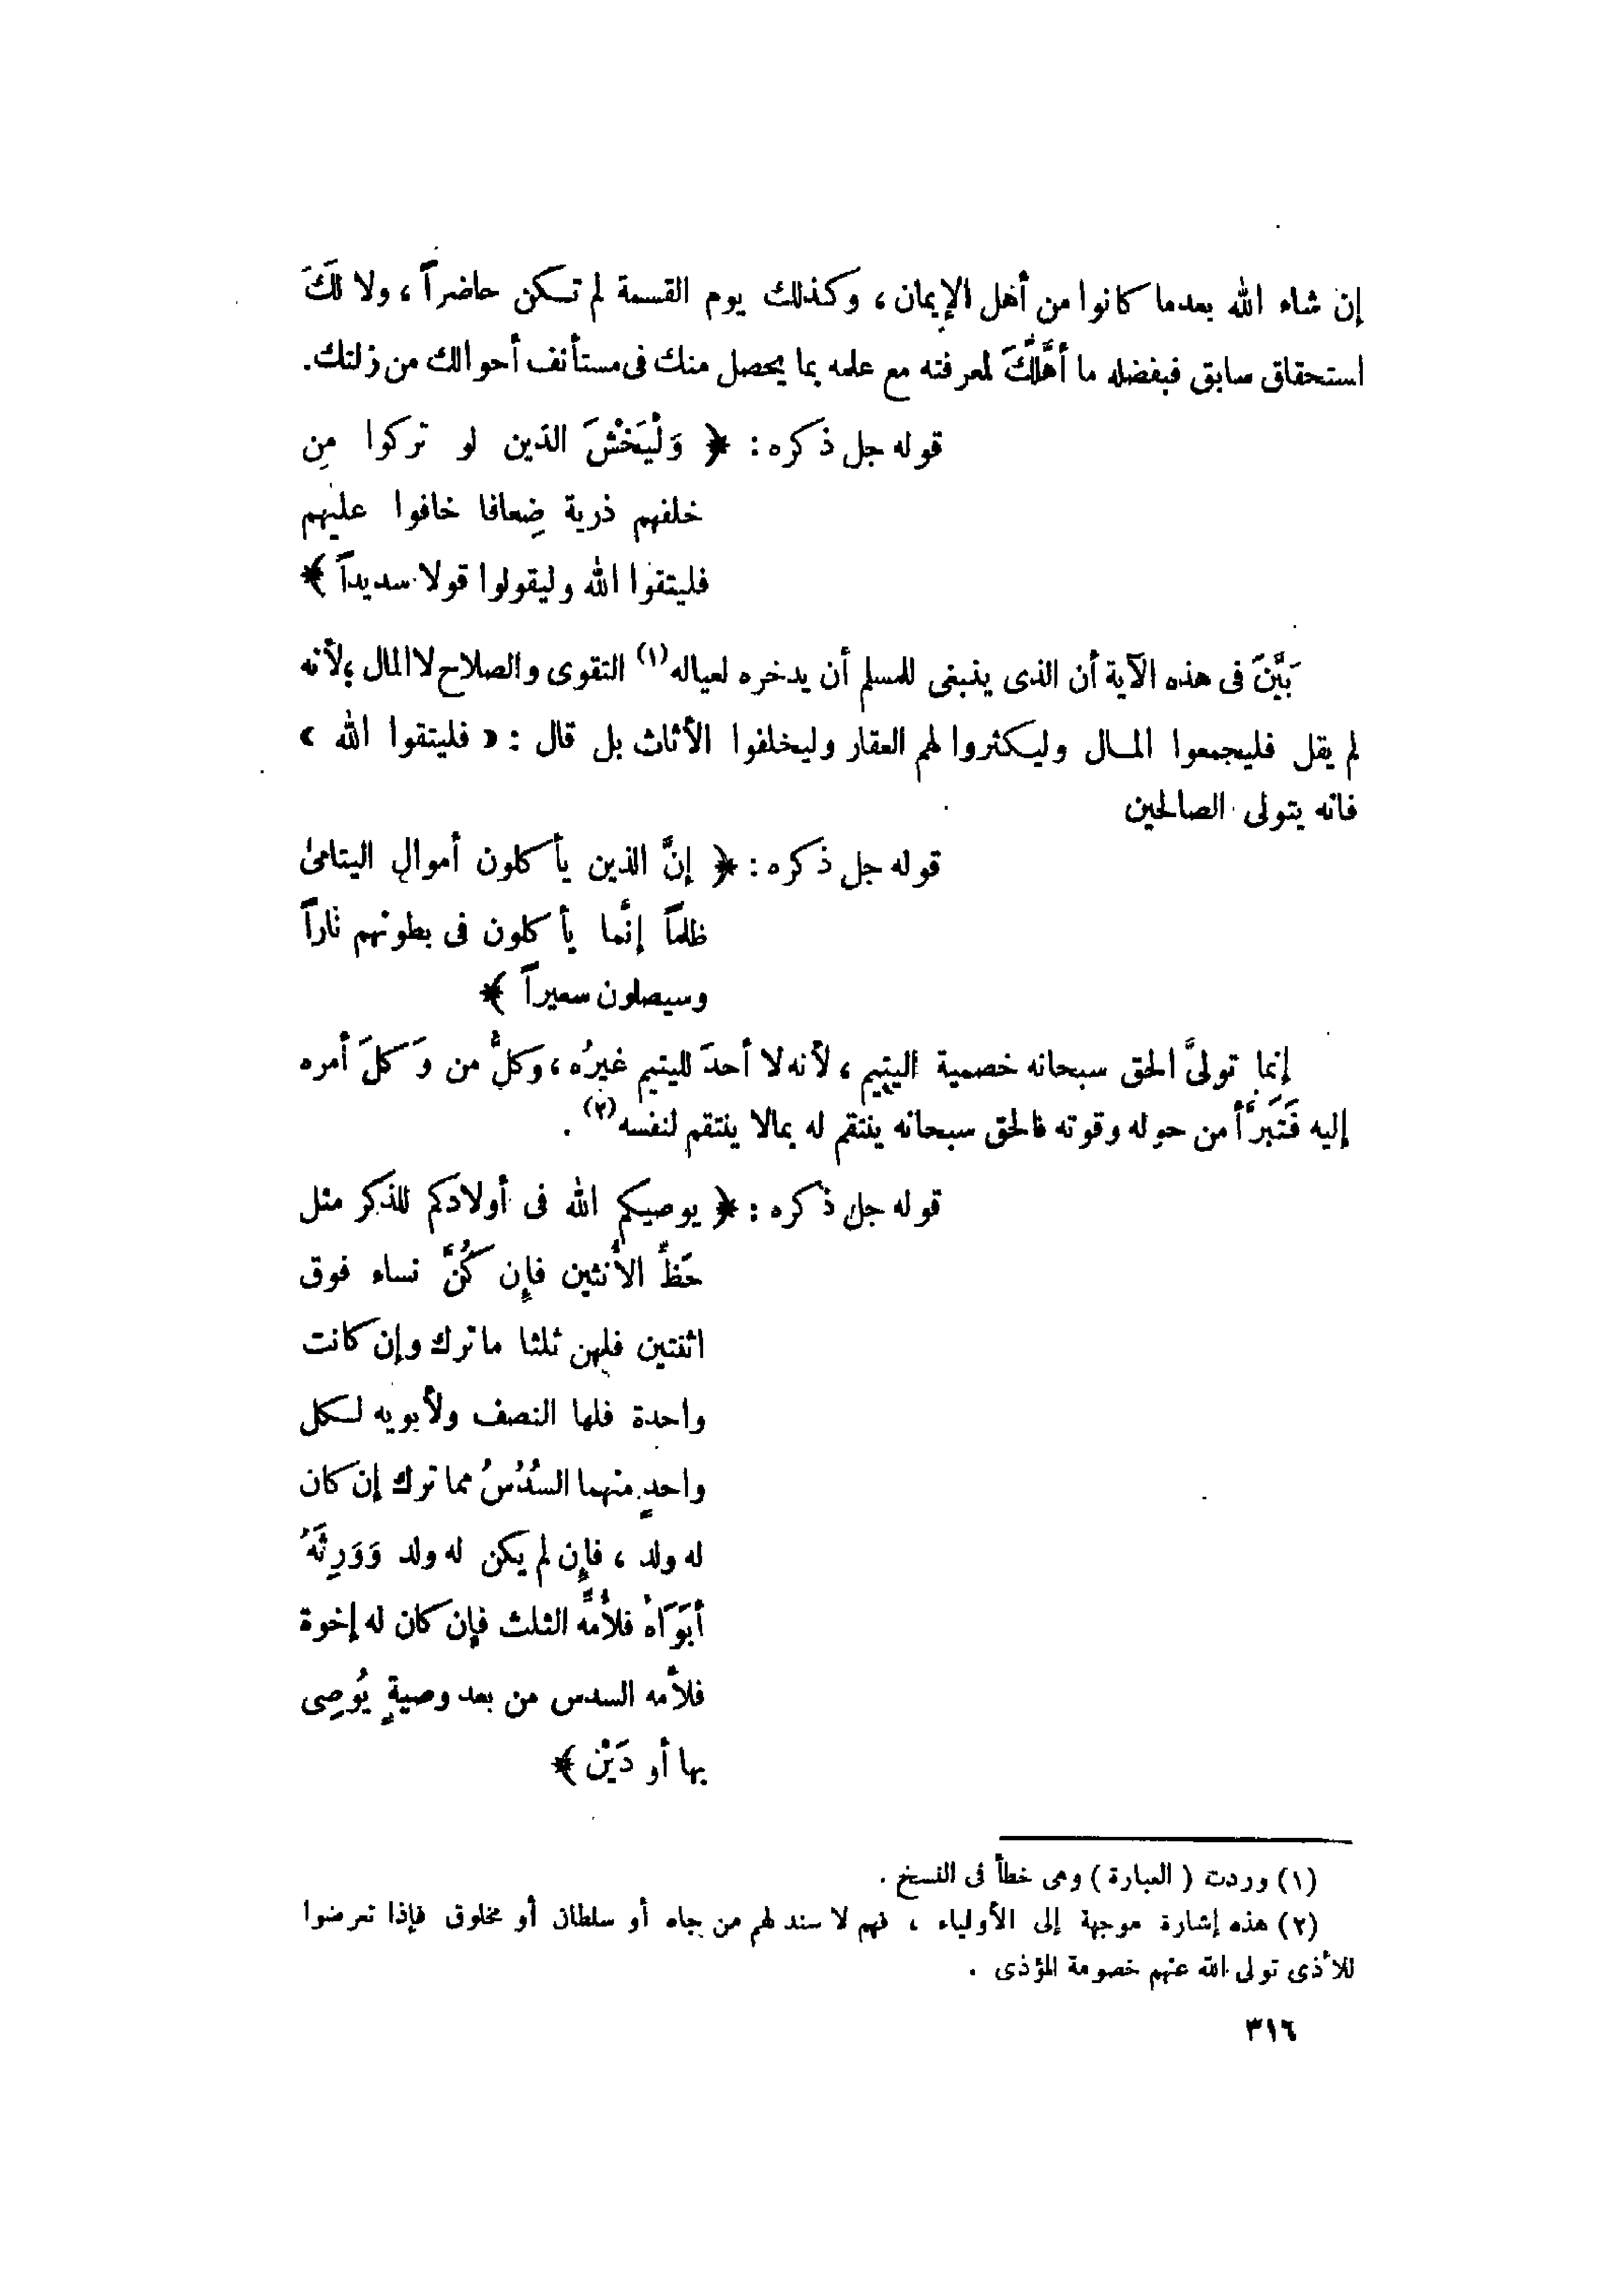 إن شاء الله بعدما كانوا من أهل الإيمان، وكذلك يوم القسمة لم تكن حاضراً، ولا لَكَ
استحقاق سابق فبفضله ما أهَّلَكَ لمعرفته مع علمه بما يحصل منك فى مستأنف أحوالك من زلتك.
قوله جل ذكره: ﴿ وَلْيَخْشَ الذين لو تركوا مِن
خلفهم ذرية ضِعافا خافوا عليهم
فليتقوا الله وليقولوا قولا سديداً ﴾
بَيَّنَ فى هذه الآية أن الذى ينبغى للمسلم أن يدخره لعياله(١) التقوى والصلاح لا المال ؛ لأنه
لم يقل فليجمعوا المال وليكثروا لهم العقار وليخلفوا الأثاث بل قال : « فليتقوا الله »
فانه يتولى الصالحين
قوله جل ذكره : ﴿ إنَّ الذين يأكلون أموال اليتامىٰ
ظلماً إنَّما يأكلون فى بطونهم ناراً
وسيصلون سعيراً ﴾
إنما تولىَّ الحق سبحانه خصمية اليتيم ، لأنه لا أحدَ لليتيم غيرُه ، وكلُّ من وَكلَ أمره
إليه فَتَبَرَّأ من حوله وقوته فالحق سبحانه ينتقم له بمالا ينتقم لنفسه(٢) .
قوله جل ذكره : ﴿ يوصيكم الله فى أولادكم للذكر مثل
حَظِّ الأنثيين فإن كُنَّ نساء فوق
اثنتين فلهن ثلثا ماترك وإن كانت
واحدة فلها النصف ولأبويه لكل
واحدٍ منهما السُدُسُ مما ترك إن كان
له ولد ، فإن لم يكن له ولد وَوَرِثَهُ
أبَوَاهُ فلأمِّه الثلث فإن كان له إخوة
فلأمه السدس من بعد وصيةٍ يُوصِى
بها أو دَيْن ﴾
(١) وردت ( العبارة ) وهى خطأ فى النسخ .
(٢) هذه إشارة موجهة إلى الأولياء ، فهم لا سند لهم من جاه أو سلطان أو مخلوق فإذا تعرضوا
للأذى تولى الله عنهم خصومة المؤذى .
٣١٦